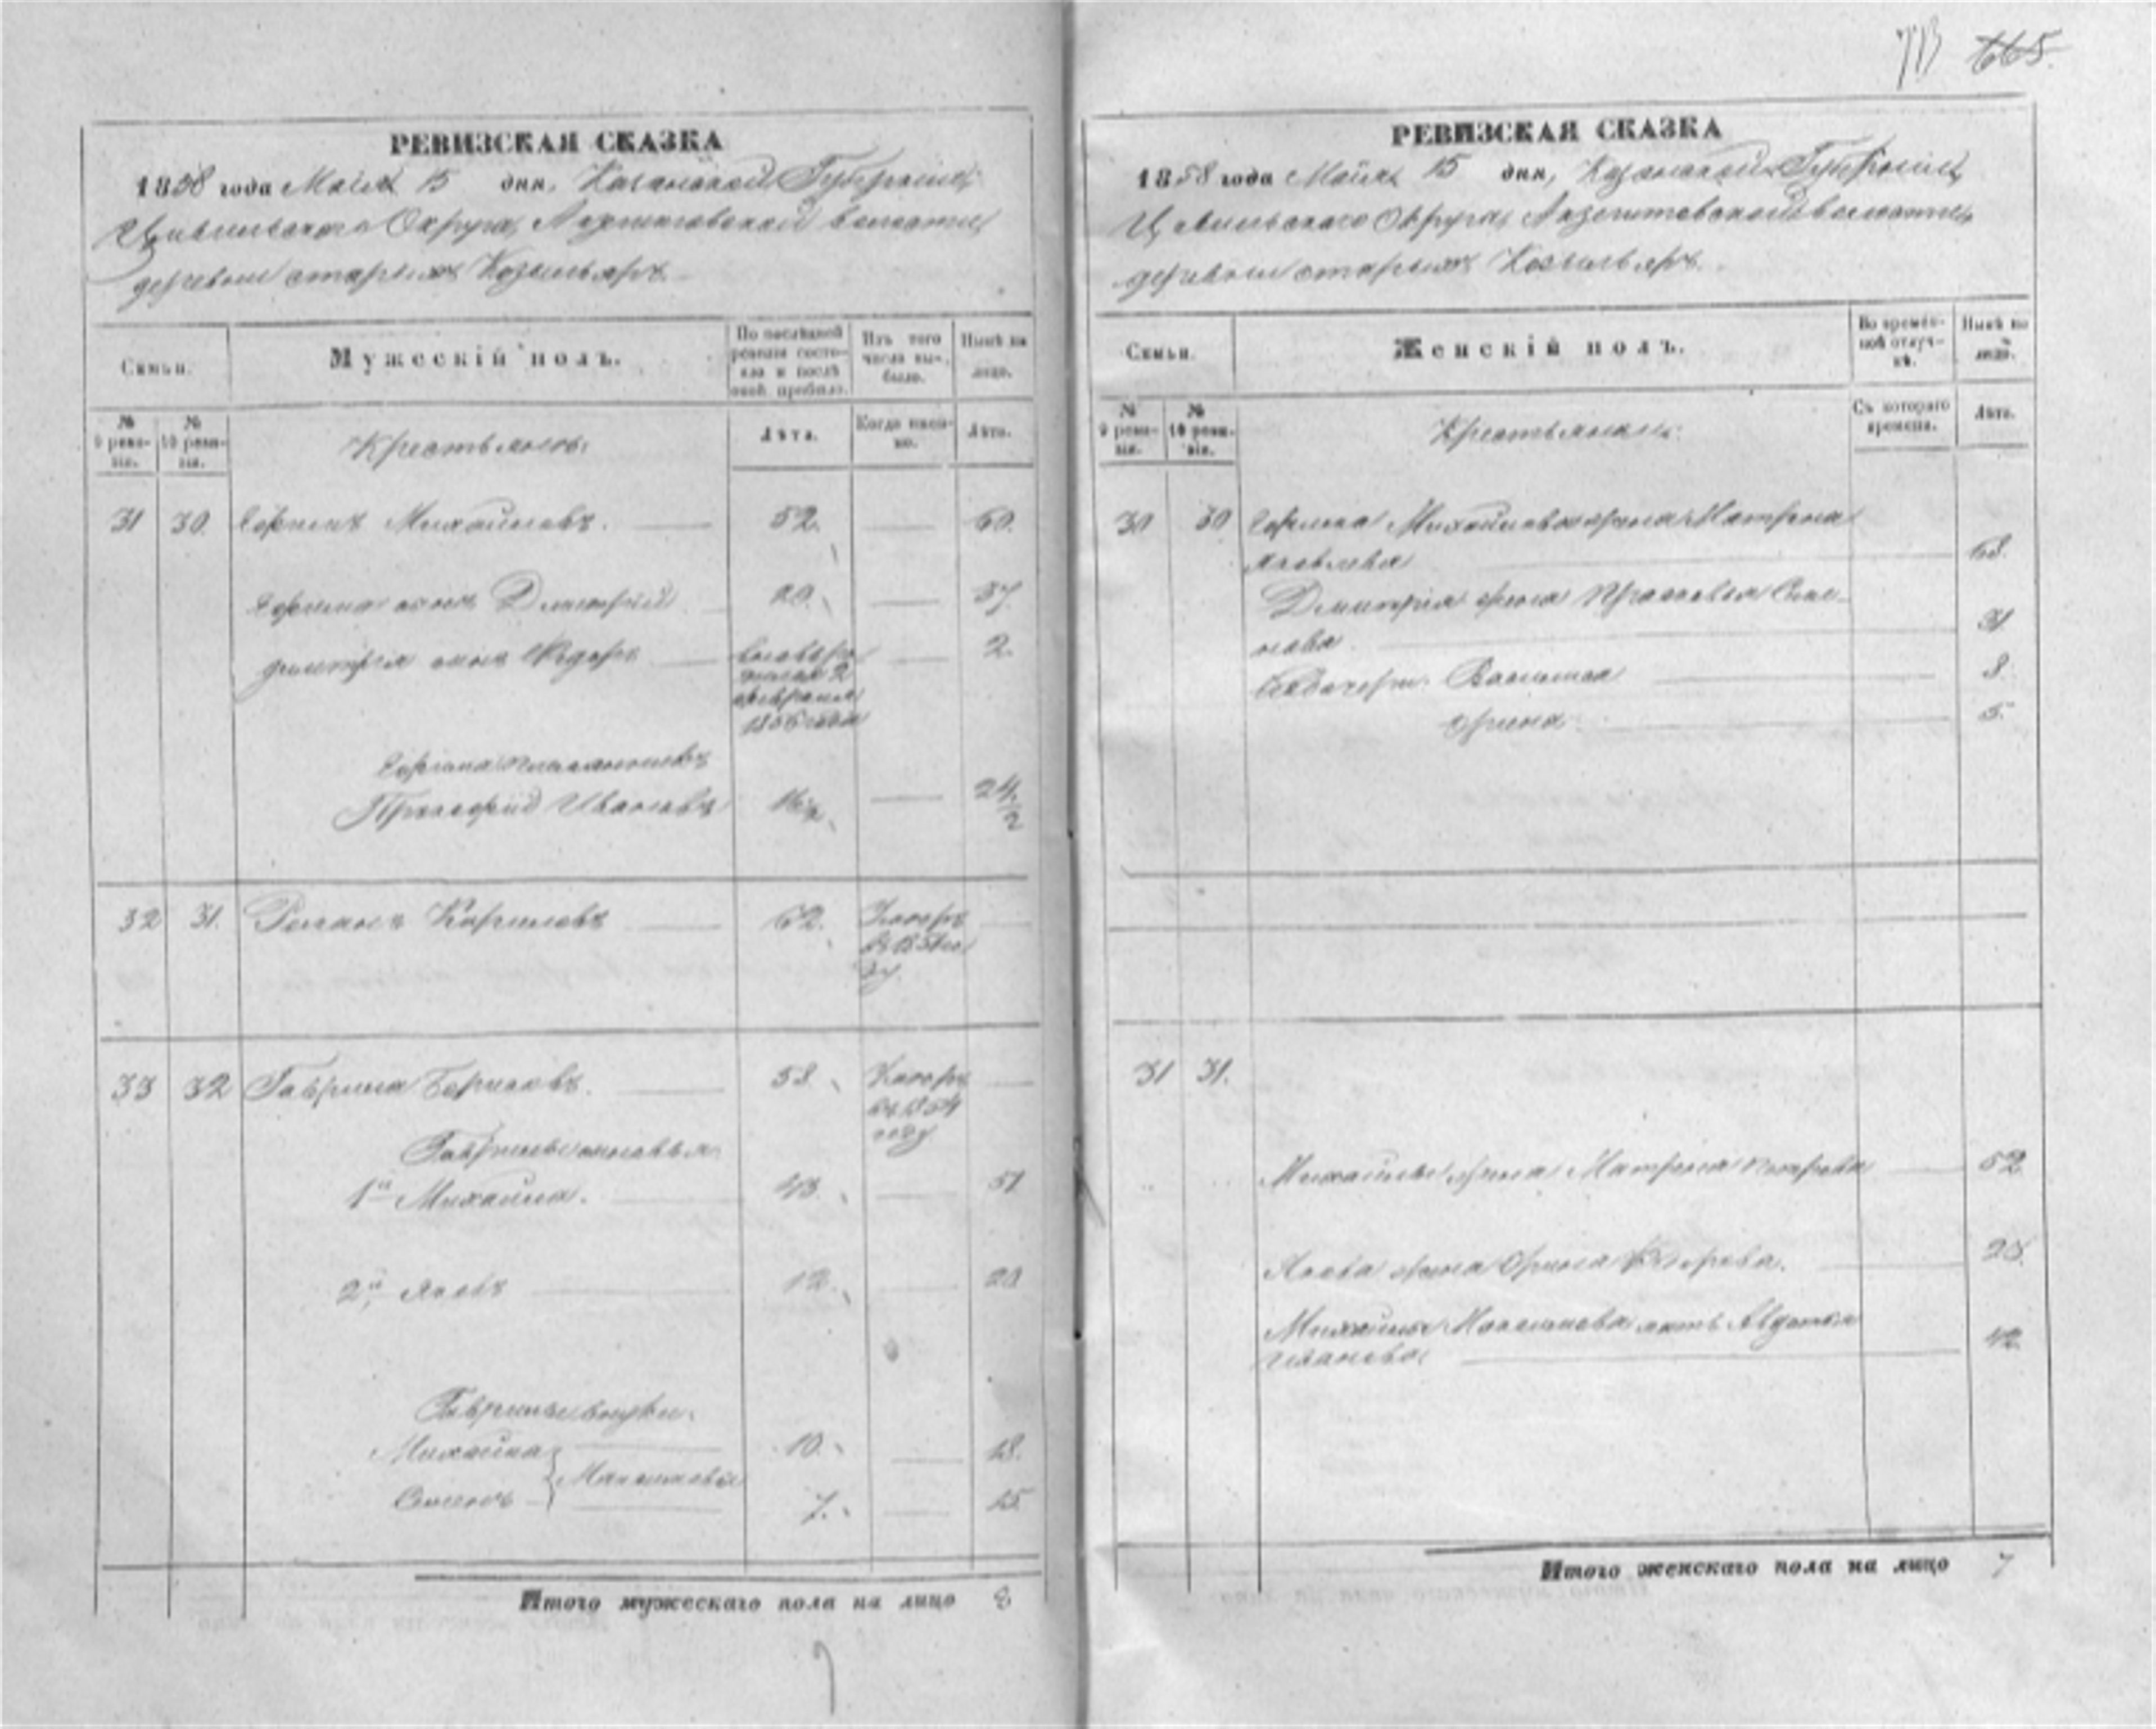 713 665.
РЕВИЗСКАЯ СКАЗКА
1858 года Маія 15 дня, Казанской Губерніи,
Цивильскаго Округа, волости,
деревни старыхъ Козыльяръ.
Семьи.
Мужескій полъ.
По послѣдней ревизіи состояло и послѣ оной прибыло.
Изъ того числа выбыло.
Нынѣ на лицо.
№ 9 ревизіи.
№ 10 ревизіи.
Крестьянъ:
Лѣта.
Когда именно.
Лѣта.
31 30. Ефимъ Михайловъ. 52. 60.
Ефима сынъ Дмитрій 29. 37.
Дмитрія сынъ Ѳедоръ 2.
февраля
1856 года
Ефима племянникъ
Прокофій Ивановъ 16½ 24½
32 31. Романъ Кириловъ 62.
33 32 Гаврила Борисовъ. 58.
въ 1854
году
Гаврилы сыновья
1й Михайла. 43. 51
2й Яковъ 12. 20
Гаврилы внуки.
Михайла 10. 18.
Семенъ 7. 15.
Итого мужескаго пола на лицо 8
РЕВИЗСКАЯ СКАЗКА
1858 года Маія 15 дня, Казанской Губерніи,
Цивильскаго Округа, волости,
деревни старыхъ Козыльяръ.
Семьи.
Женскій полъ.
Во временной отлучкѣ.
Нынѣ на лицо.
№ 9 ревизіи.
№ 10 ревизіи.
Крестьянки:
Съ котораго времени.
Лѣта.
30 30 Ефима Михайлова жена Матрена
Яковлева 68.
Дмитрія жена Прасковья Семе-
нова 31
Василиса 8.
Орина 5.
31 31.
Михайлы жена Матрена Петрова 52.
Якова жена Орина Ѳедорова. 25.
Михайлы мать Авдотья
Иванова 42.
Итого женскаго пола на лицо 7